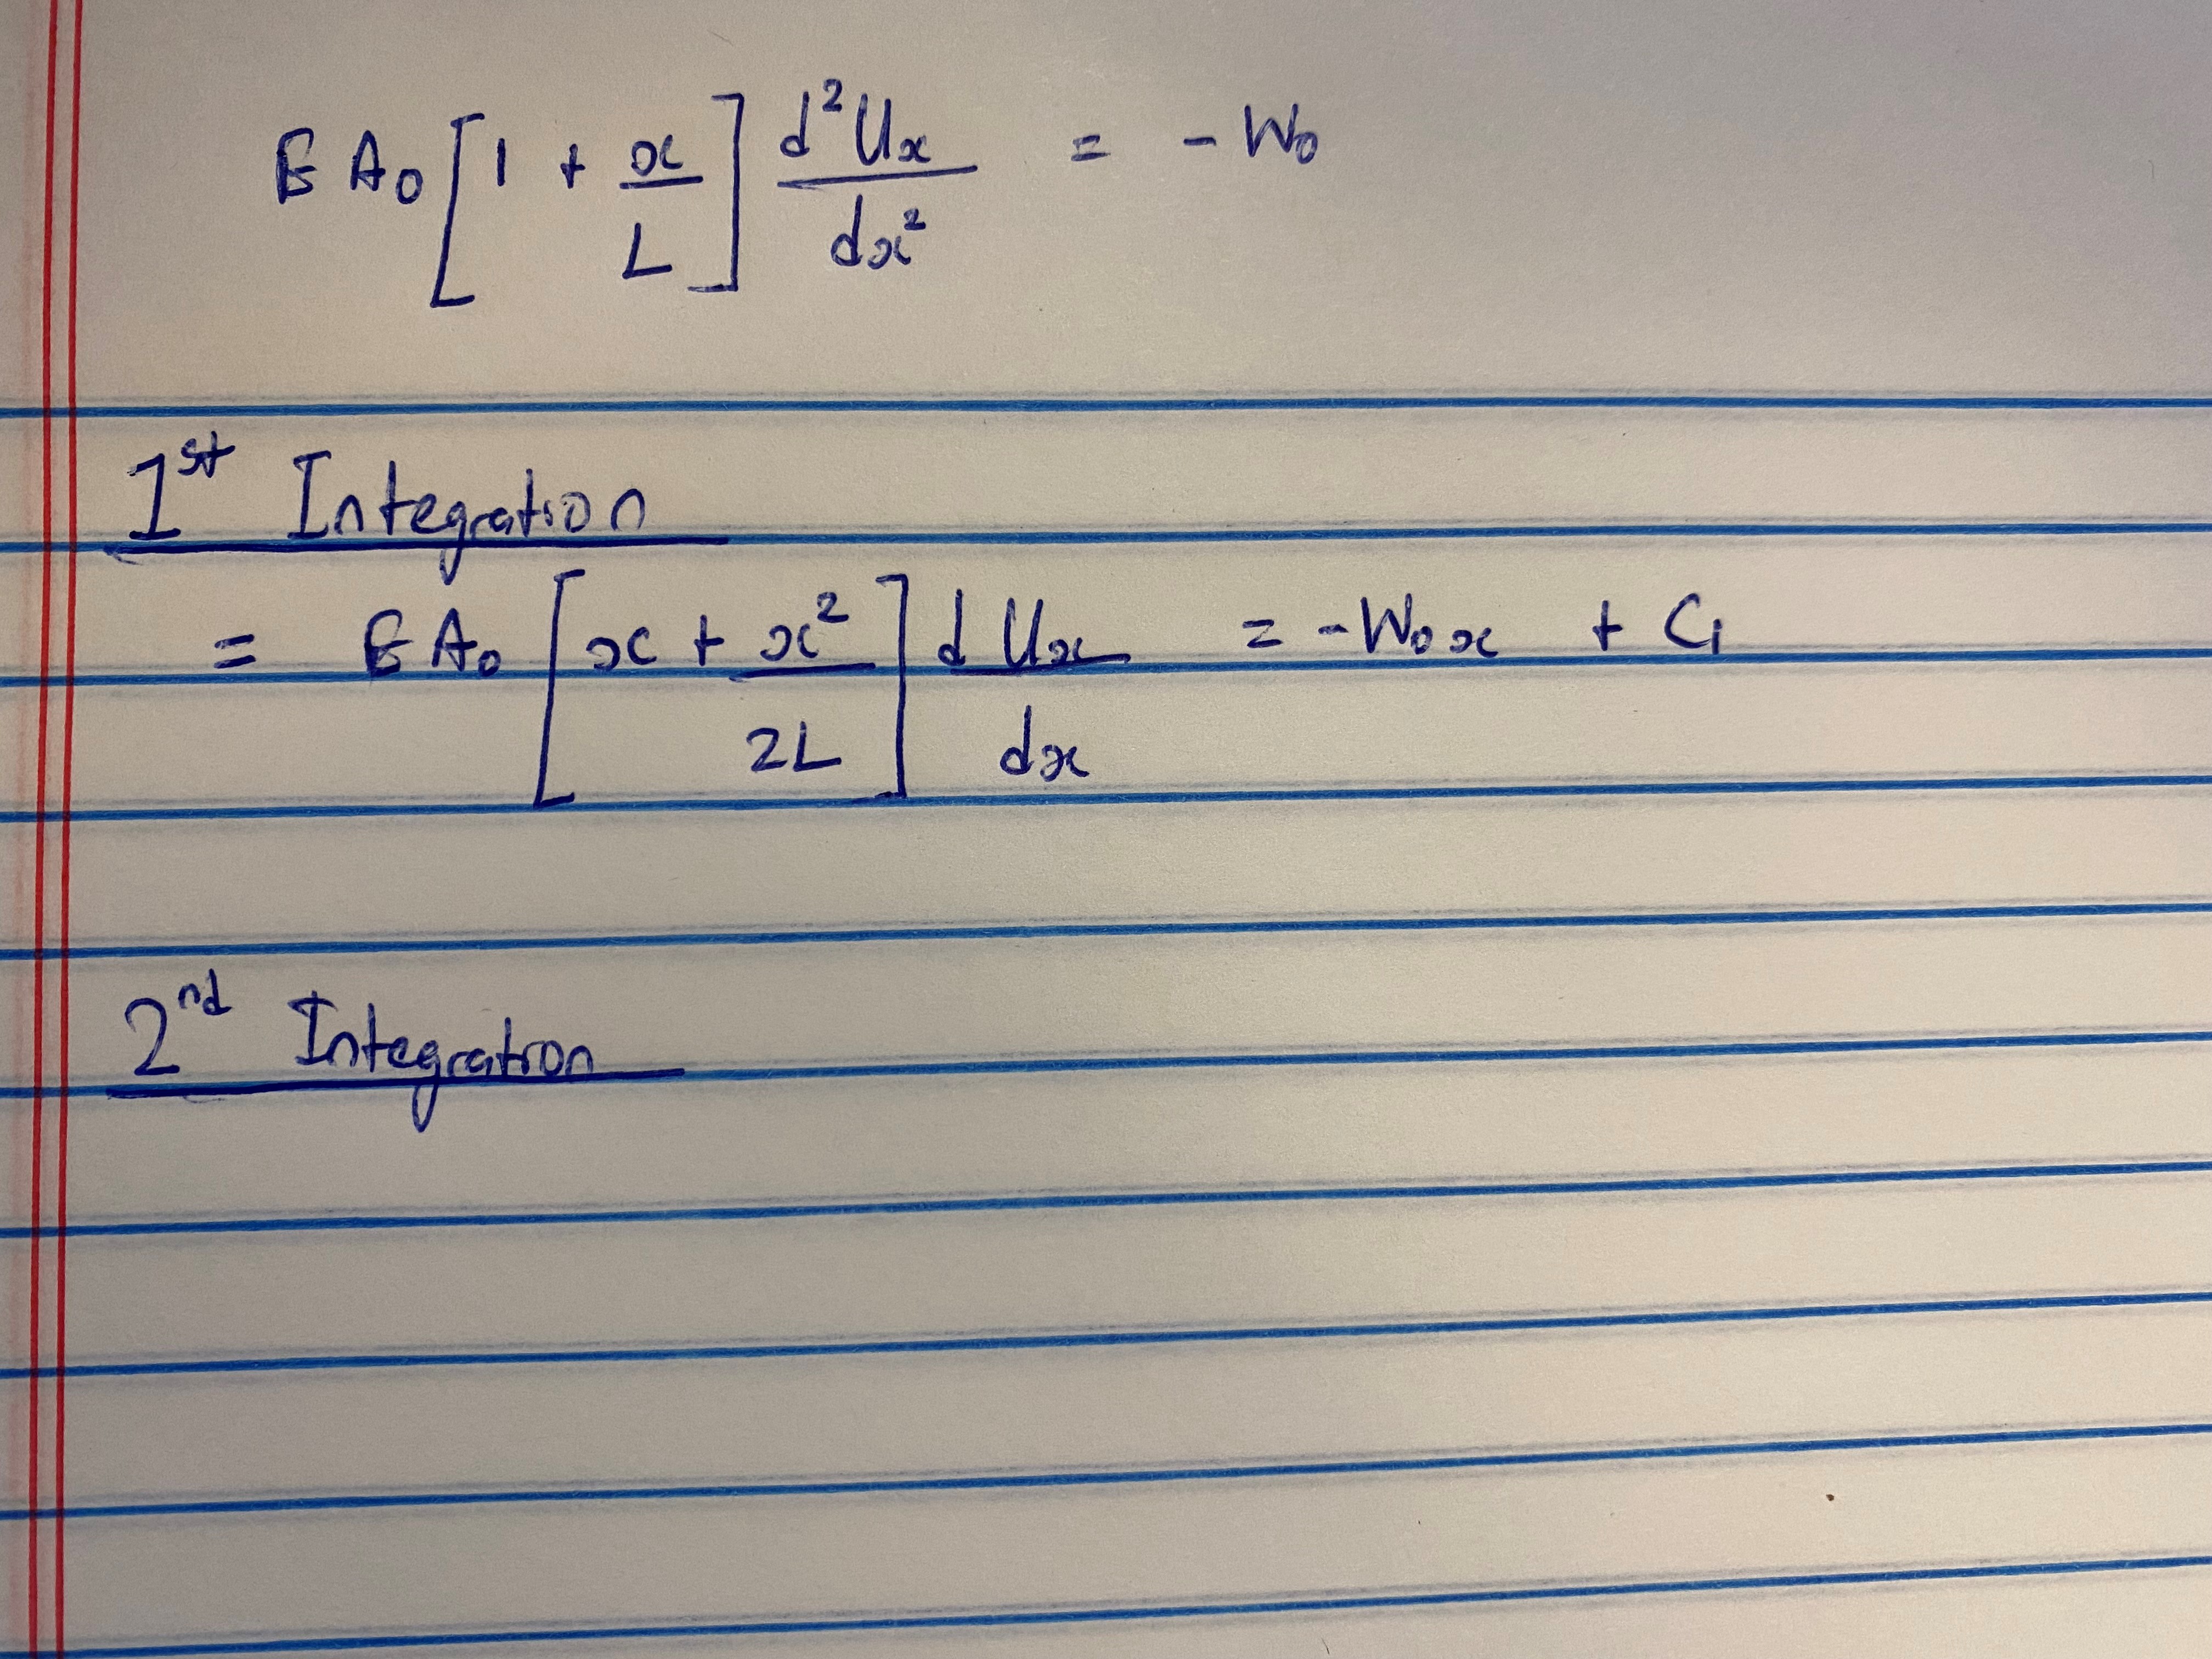 EA₀[1 + x/L] d²Uₓ/dx² = -W₀
1st Integration
= EA₀[x + x²/2L] dUₓ/dx = -W₀x + C₁
2nd Integration